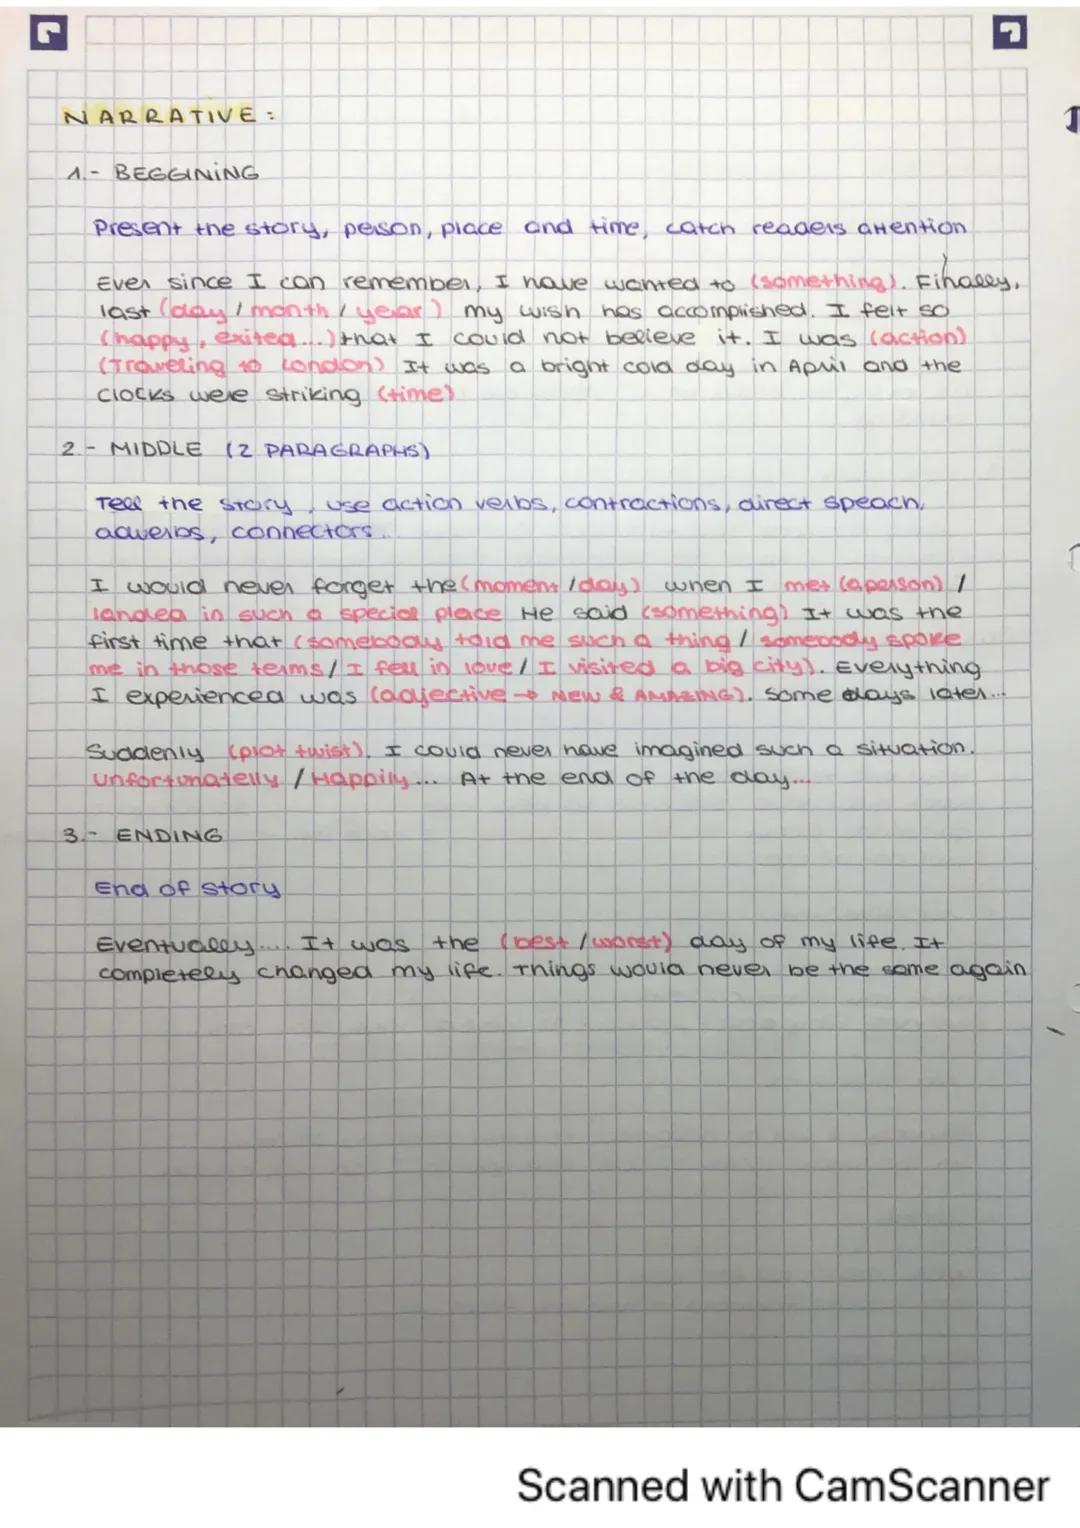 NARRATIVE:
1.- BEGGINING
Present the story, person, place and time, catch readers attention
Ever since I can remember, I have wanted to (something). Finally,
last (day / month / year) my wish has accomplished. I felt so
(happy, exited...) that I could not believe it. I was (action)
(Traveling to London) It was a bright cold day in April and the
clocks were striking (time)
2.- MIDDLE (2 PARAGRAPHS)
Tell the story, use action verbs, contractions, direct speach,
adverbs, connectors...
I would never forget the (moment / day) when I met (a person) /
landed in such a special place He said (something) It was the
first time that (somebody told me such a thing / somebody spoke
me in those terms / I fell in love / I visited a big city). Everything
I experienced was (adjective → NEW & AMAZING). Some days later...
Suddenly (plot twist). I could never have imagined such a situation.
Unfortunatelly / Happily... At the end of the day...
3.- ENDING
End of story
Eventually.... It was the (best / worst) day of my life. It
completely changed my life. Things would never be the same again
Scanned with CamScanner